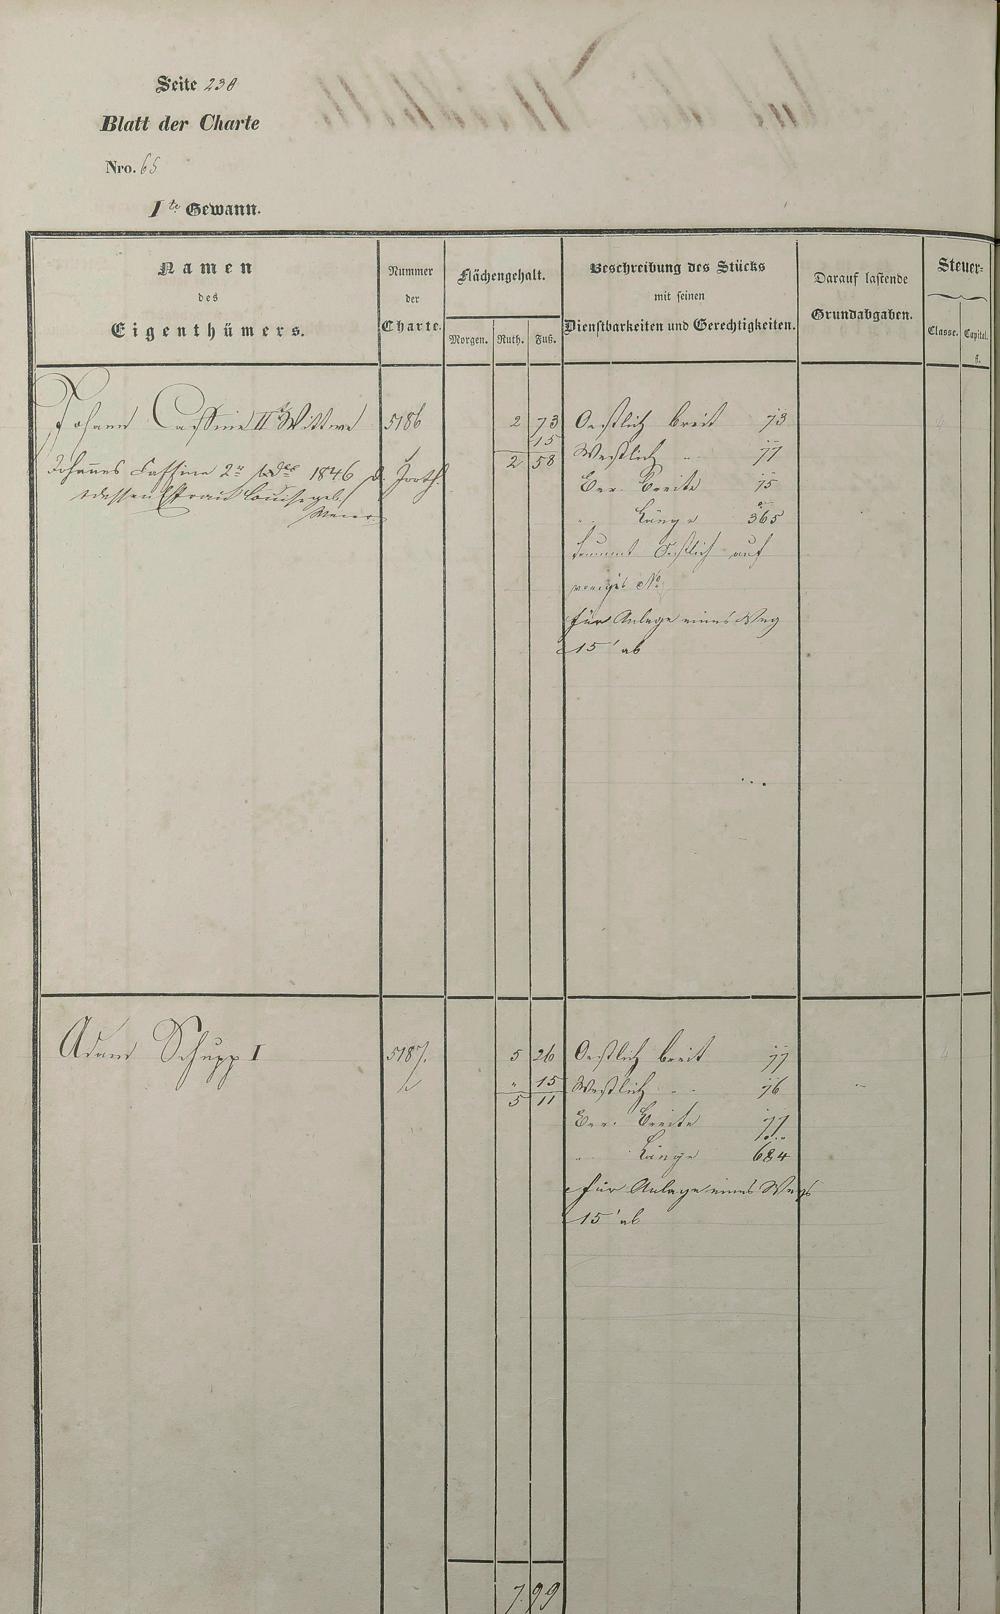 Seite 238
Blatt der Charte
Nro. 65
Ite Gewann.
Namen
des
Eigenthümers.
Nummer
der
Charte.
Flächengehalt.
Morgen. Ruth. Fuß.
Beschreibung des Stücks
mit seinen
Dienstbarkeiten und Gerechtigkeiten.
Darauf lastende
Grundabgaben.
Steuer-
Classe. Capital.
fl.
Johann Cassine IIt Wittwe 5186 2 73 Oestlich breit 73
15
Johannes Cassine 2r 1846 2 58 Westlich " 77
dessen Efrau Louise geb. Ver. Breite 75
Meier
" Länge 365
kommt Oestlich auf
voriges No.
für Anlage eines Weg
15' ab
Adam Schupp I 5187. 5 26 Oestlich breit 77
" 15 Westlich " 76
5 11
Ver. Breite 77
" Länge 684
für Anlage eines Wegs
15' ab
7 99